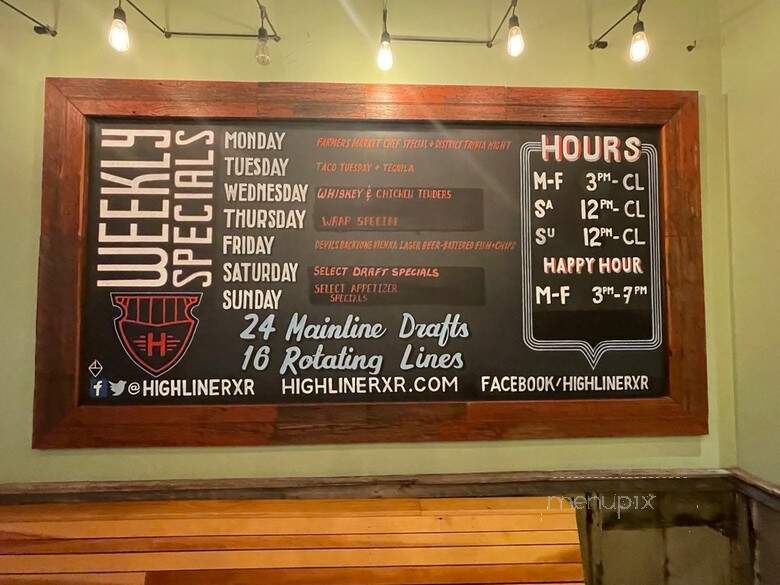 WEEKLY
SPECIALS
MONDAY FARMERS MARKET CHEF SPECIAL + DISTRICT TRIVIA NIGHT
TUESDAY TACO TUESDAY + TEQUILA
WEDNESDAY WHISKEY & CHICKEN TENDERS
THURSDAY WRAP SPECIAL
FRIDAY DEVILS BACKBONE VIENNA LAGER BEER-BATTERED FISH + CHIPS
SATURDAY SELECT DRAFT SPECIALS
SUNDAY SELECT APPETIZER
SPECIALS
24 Mainline Drafts
16 Rotating Lines
HOURS
M-F 3PM- CL
SA 12PM- CL
SU 12PM- CL
HAPPY HOUR
M-F 3PM-7PM
H
@HIGHLINERXR HIGHLINERXR.COM FACEBOOK/HIGHLINERXR
menupix